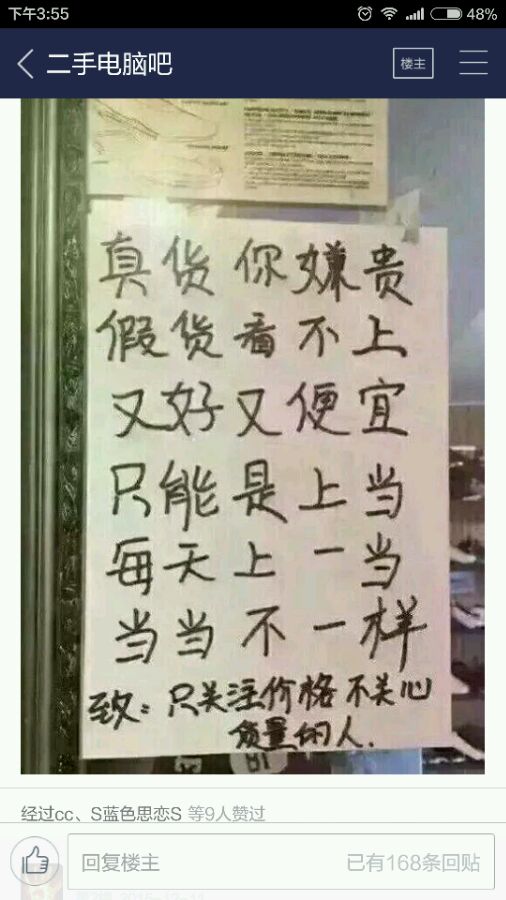 下午3:55
48%
二手电脑吧
楼主
真货你嫌贵
假货看不上
又好又便宜
只能是上当
每天上一当
当当不一样
致：只关注价格不关心
质量的人.
经过cc、S蓝色思恋S 等9人赞过
回复楼主
已有168条回贴